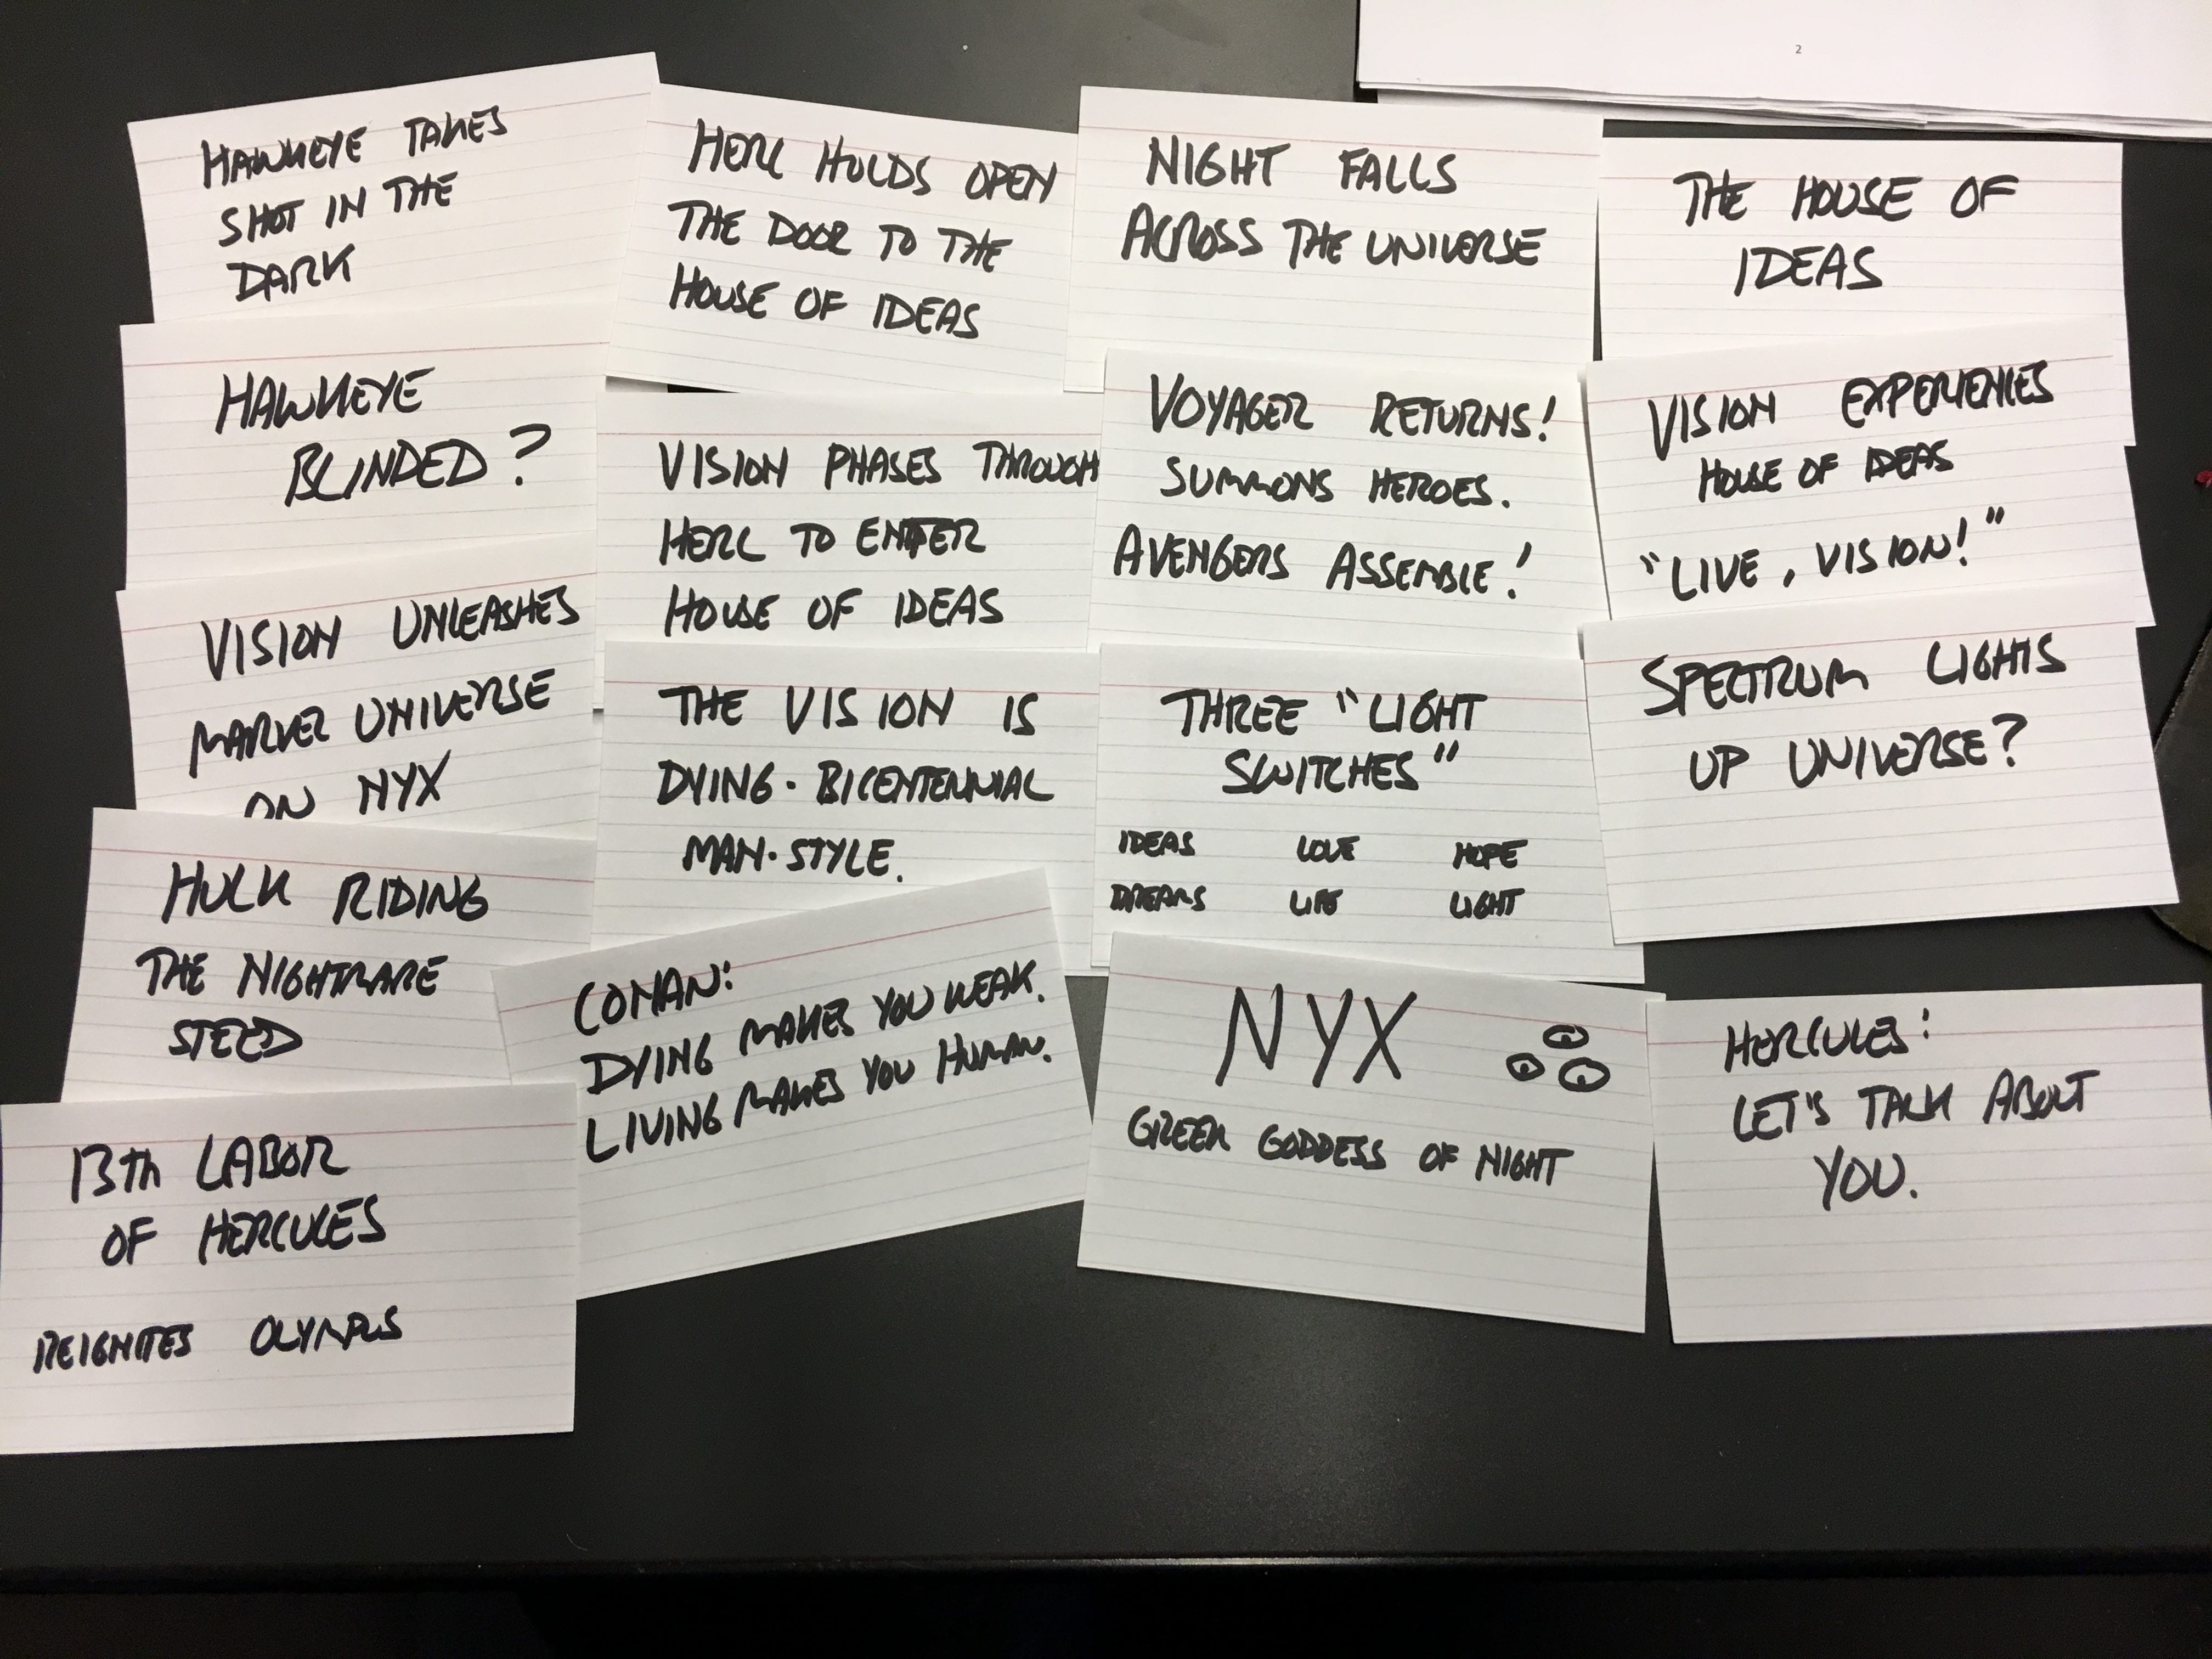 2
HAWKEYE TAKES
SHOT IN THE
DARK
HAWKEYE
BLINDED?
VISION UNLEASHES
MARVEL UNIVERSE
ON NYX
HULK RIDING
THE NIGHTMARE
STEED
13th LABOR
OF HERCULES
REIGNITES OLYMPUS
HERC HOLDS OPEN
THE DOOR TO THE
HOUSE OF IDEAS
VISION PHASES THROUGH
HERC TO ENTER
HOUSE OF IDEAS
THE VISION IS
DYING. BICENTENNIAL
MAN-STYLE.
CONAN:
DYING MAKES YOU WEAK.
LIVING MAKES YOU HUMAN.
NIGHT FALLS
ACROSS THE UNIVERSE
VOYAGER RETURNS!
SUMMONS HEROES.
AVENGERS ASSEMBLE!
THREE "LIGHT
SWITCHES"
IDEAS LOVE HOPE
DREAMS LIFE LIGHT
NYX
GREEK GODDESS OF NIGHT
THE HOUSE OF
IDEAS
VISION EXPERIENCES
HOUSE OF IDEAS
"LIVE, VISION!"
SPECTRUM LIGHTS
UP UNIVERSE?
HERCULES:
LET'S TALK ABOUT
YOU.